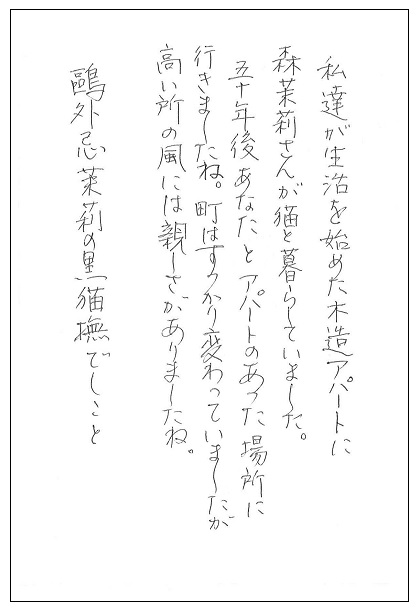 私達が生活を始めた木造アパートに
森茉莉さんが猫と暮らしていました。
五十年後あなたとアパートのあった場所に
行きましたね。町はすっかり変わっていましたが
高い所の風には親しさがありましたね。
鷗外忌茉莉の黒猫撫でしこと